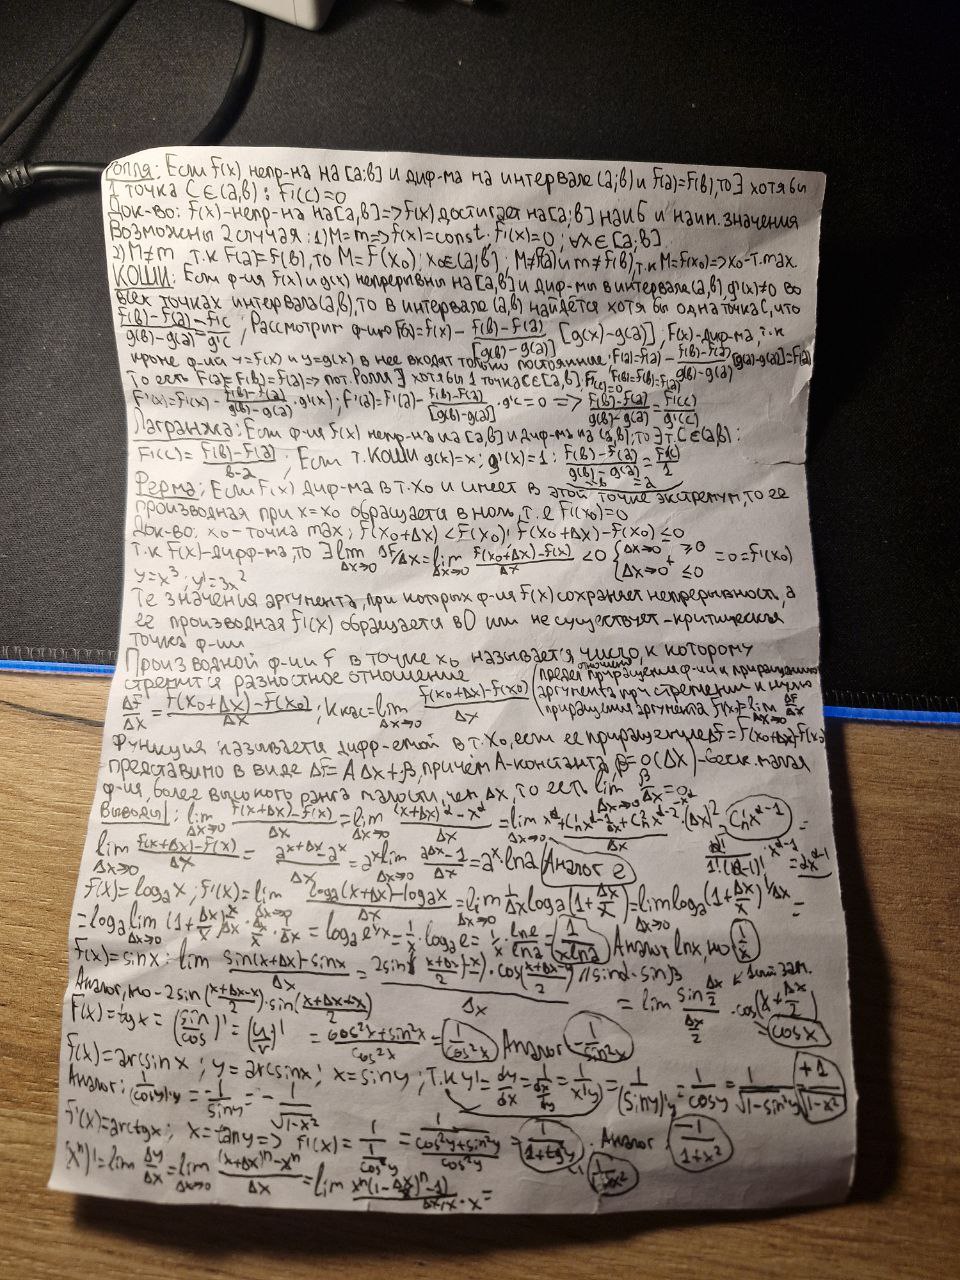 Ролля: Если f(x) непр-на на [a;в] и диф-ма на интервале (a;в) и f(a)=f(в), то ∃ хотя бы
1 точка C∈(a,в): f'(c)=0
Док-во: f(x)-непр-на на [a,в]=>f(x) достигает на [a;в] наиб и наим. значения
Возможны 2 случая: 1) M=m=>f(x)=const. f'(x)=0; ∀x∈[a;в]
2) M≠m, т.к F(a)=F(в), то M=F(x₀); x₀∈(a;в); M≠f(a) и m≠f(в), т.к M=f(x₀)=>x₀-т.max
КОШИ: Если ф-ия f(x) и g(x) непрерывны на [a,в] и диф-мы в интервале (a,в), g'(x)≠0 во
всех точках интервала (a,в), то в интервале (a,в) найдётся хотя бы одна точка C, что
f(в)-f(a)/g(в)-g(a)=f'c/g'c, Рассмотрим ф-ию F(x)=f(x)- f(в)-f(a)/[g(в)-g(a)] [g(x)-g(a)]; F(x)-диф-ма, т.к
кроме ф-ий y=f(x) и y=g(x) в неё входят только постоянные. F(a)=f(a)- f(в)-f(a)/g(в)-g(a) [g(a)-g(a)]=f(a)
То есть F(a)=F(в)=f(a)=> по т. Ролля ∃ хотя бы 1 точка C∈[a,в], F'(c)=0
F'(x)=f'(x)- f(в)-f(a)/g(в)-g(a) · g'(x); F'(a)=f'(a)- f(в)-f(a)/[g(в)-g(a)] · g'c=0 => f(в)-f(a)/g(в)-g(a) = f'(c)/g'(c)
Лагранжа: Если ф-ия f(x) непр-на на [a,в] и диф-ма на (a,в), то ∃ т. C∈(a,в):
f'(c)= f(в)-f(a)/в-a; Если т. КОШИ g(x)=x; g'(x)=1: f(в)-f(a)/g(в)-g(a) = f'(c)/1
Ферма: Если f(x) диф-ма в т. x₀ и имеет в этой точке экстремум, то ее
производная при x=x₀ обращается в ноль, т.е f'(x₀)=0
Док-во: x₀-точка max; f(x₀+Δx)<f(x₀); f(x₀+Δx)-f(x₀)≤0
т.к f(x)-дифф-ма, то ∃ lim Δx→0 Δf/Δx=lim Δx→0 f(x₀+Δx)-f(x)/Δx <0 {Δx→0 ≥0 Δx→0⁺ ≤0 =0=f'(x₀)
y=x³; y'=3x²
Те значения аргумента, при которых ф-ия f(x) сохраняет непрерывность, а
её производная f'(x) обращается в 0 или не существует-критическая
точка ф-ии
Производной ф-ии f в точке x₀ называется число, к которому
стремится разностное отношение (предел отношения приращения ф-ии к приращению
Δf/Δx = f(x₀+Δx)-f(x₀)/Δx; Kкас=lim Δx→0 f(x₀+Δx)-f(x₀)/Δx аргумента при стремлении к нулю
приращения аргумента f'(x)=lim Δx→0 Δf/Δx
Функция называется дифф-емой в т. x₀, если ее приращение Δf=f(x₀+Δx)-f(x₀)
представимо в виде Δf=AΔx+β, причём A-константа, β=o(Δx)-беск. малая
ф-ия, более высокого ранга малости, чем Δx, то есть lim Δx→0 β/Δx=0
Выводы: lim Δx→0 f(x+Δx)-f(x)/Δx = lim Δx→0 (x+Δx)^α-x^α/Δx =
lim Δx→0 f(x+Δx)-f(x)/Δx = a^(x+Δx)-a^x/Δx = a^x lim Δx→0 a^Δx-1/Δx = a^x·lna (Аналог e
f(x)=logₐx; f'(x)=lim Δx→0 logₐ(x+Δx)-logₐx/Δx = lim Δx→0 1/Δx logₐ(1+Δx/x)=lim logₐ(1+Δx/x)^1/Δx =
=logₐ lim Δx→0 (1+Δx/x)^(x/Δx·Δx/x·1/Δx) = logₐe^1/x = 1/x·logₐe = 1/x·lne/lna = 1/xlna Аналог lnx, но 1/x
f(x)=sinx: lim sin(x+Δx)-sinx/Δx = 2sin(x+Δx-x/2)·cos(x+Δx-x/2)/Δx //sinα-sinβ
Аналог, но -2sin(x+Δx-x/2)·sin(x+Δx+x/2) = lim sin Δx/2 / Δx/2 ·cos(x+Δx/2)=cosx
F(x)=tgx=(sin/cos)'=(u/v)' = cos²x+sin²x/cos²x = 1/cos²x Аналог -1/sin²x
f(x)=arcsinx; y=arcsinx; x=siny; т.к y'=dy/dx = 1/x'y = 1/(siny)'y = 1/cosy = 1/√1-sin²y = +1/√1-x²
Аналог: 1/(cosy)'y = -1/siny = -1/√1-x²
f'(x)=arctgx; x=tany=> f'(x)= 1/(1/cos²y) = 1/(cos²y+sin²y/cos²y) = 1/1+tg²y. Аналог -1/1+x²
1/1+x²
(xⁿ)'=lim Δy/Δx = lim Δx→0 (x+Δx)ⁿ-xⁿ/Δx = lim xⁿ(1-Δx)ⁿ-1)/Δx/x·x =